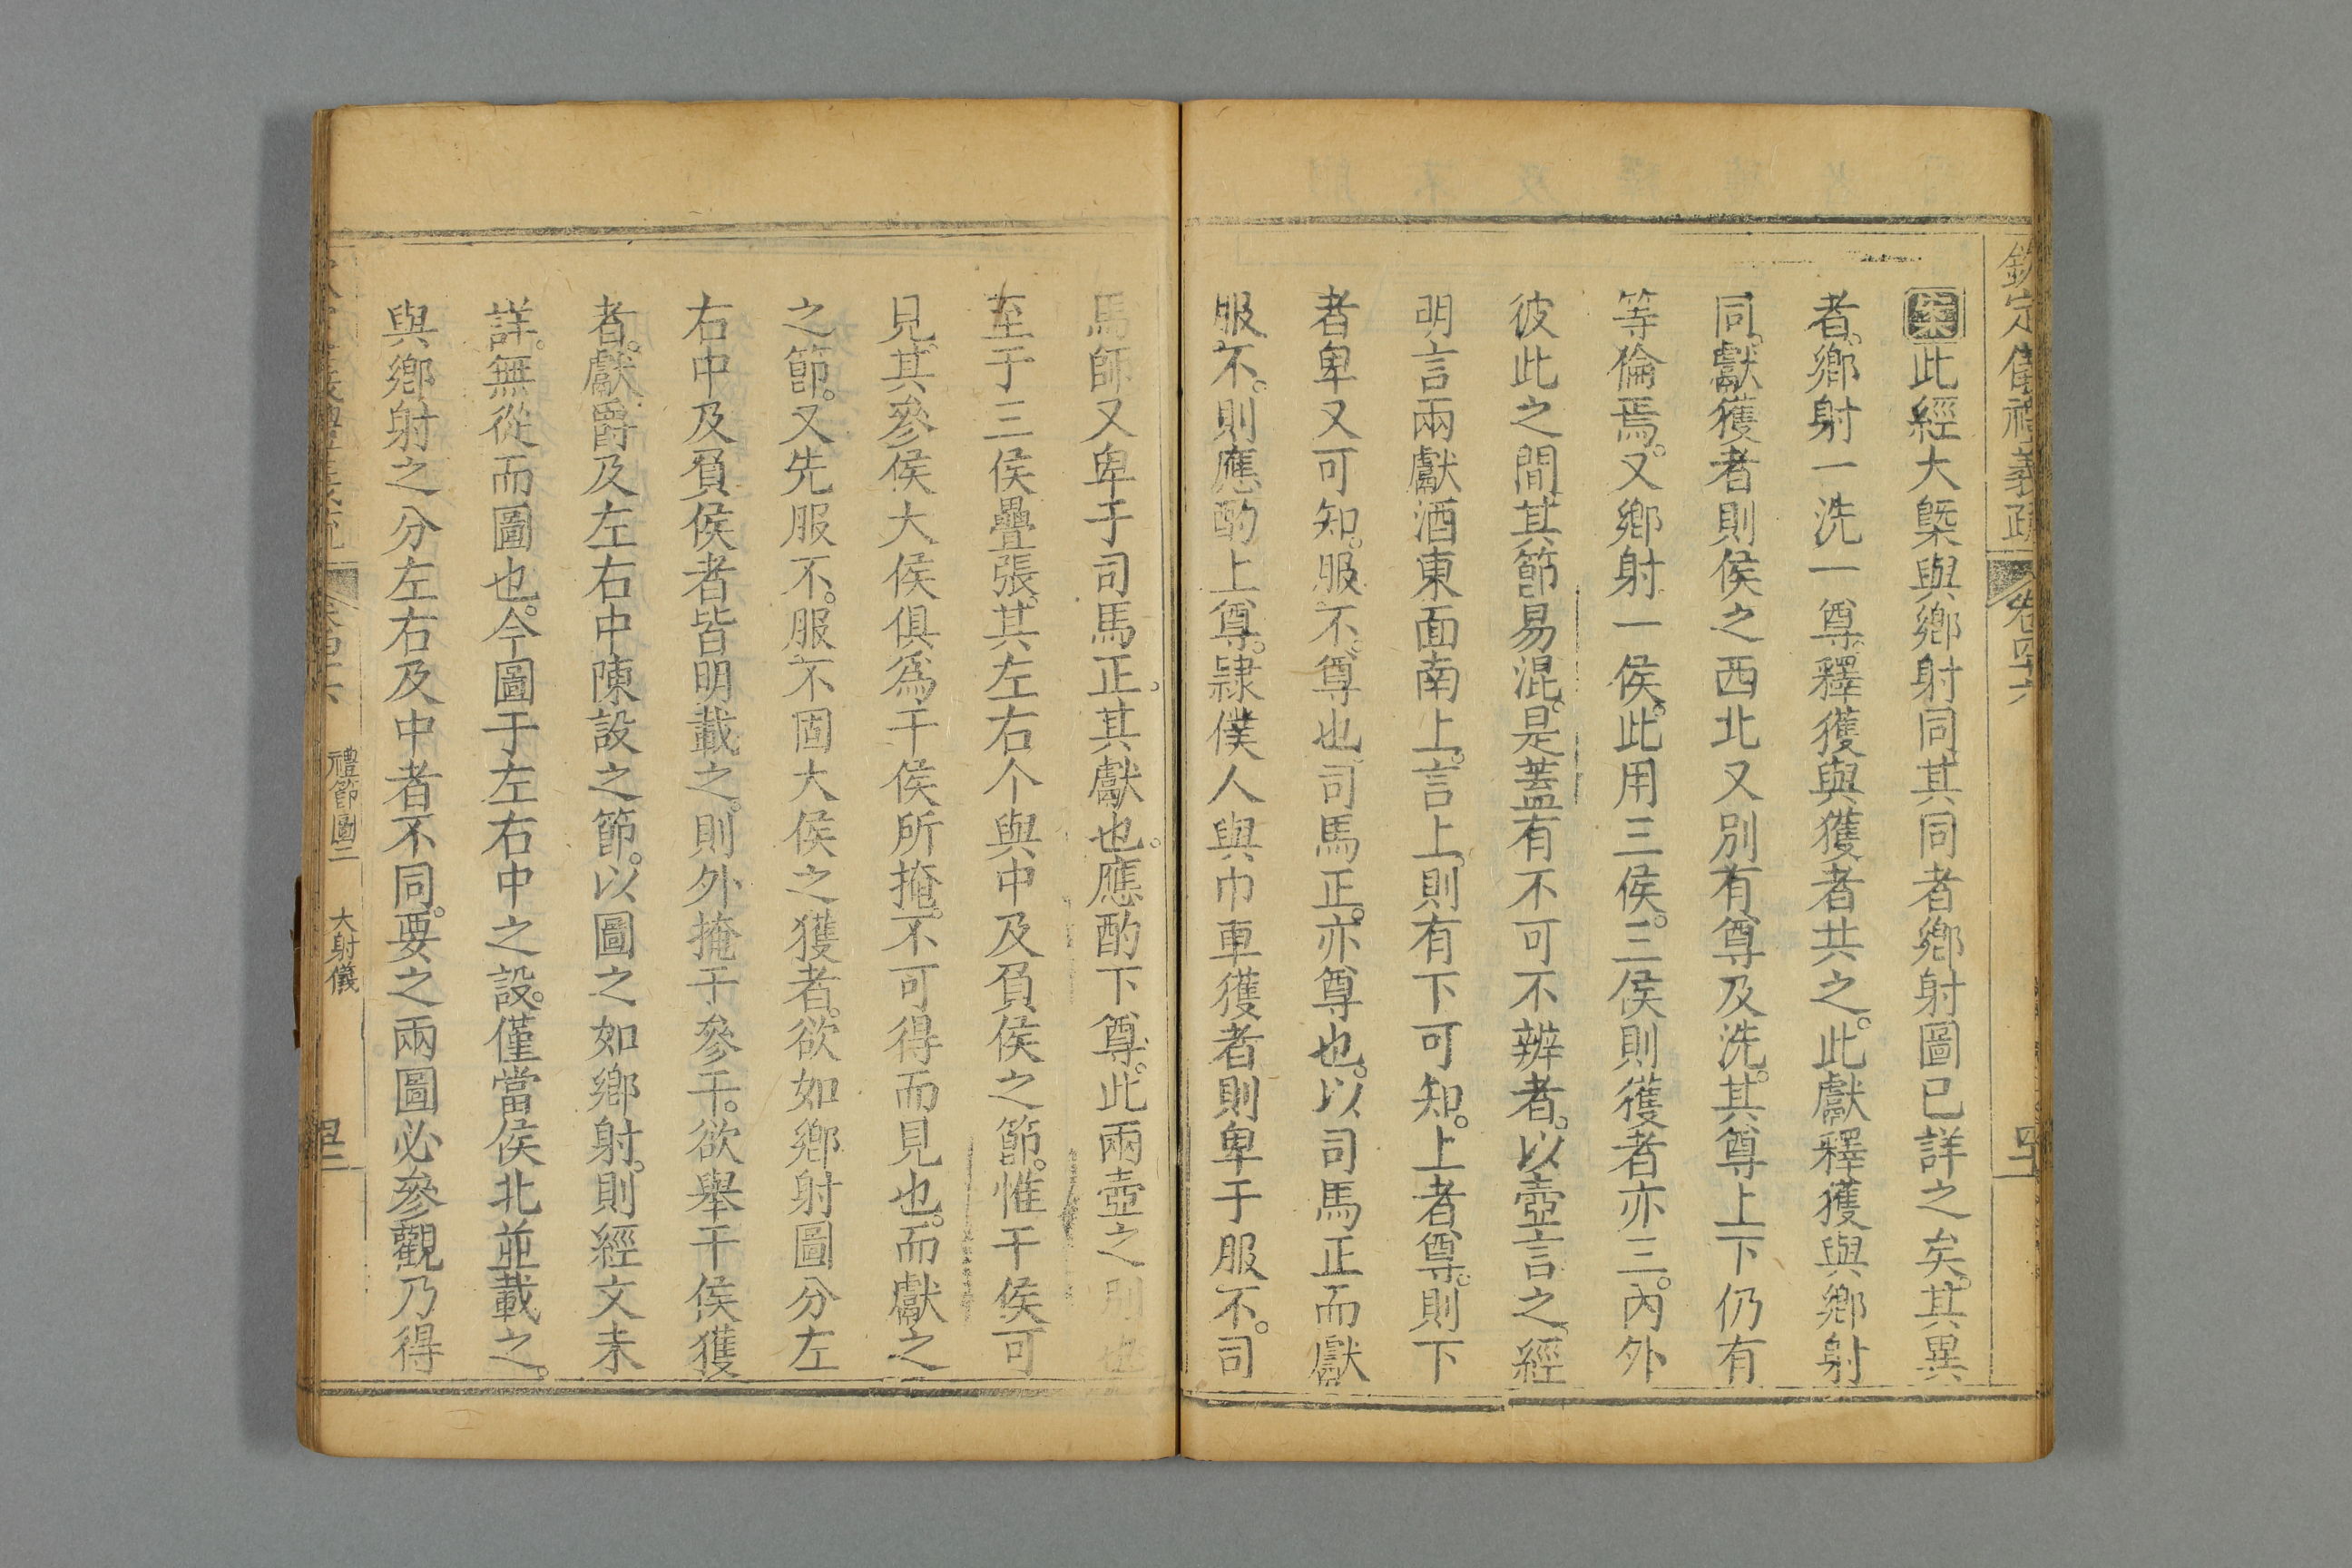 欽定儀禮義疏 卷四十六
案此經大槩與鄉射同其同者鄉射圖已詳之矣。其異
者。鄉射一洗一尊。釋獲與獲者共之。此獻釋獲與鄉射
同。獻獲者則侯之西北又別有尊及洗。其尊上下仍有
等倫焉。又鄉射一侯。此用三侯。三侯則獲者亦三。內外
彼此之間其節易混。是蓋有不可不辨者。以壺言之經
明言兩獻酒東面南上。言上。則有下可知。上者尊。則下
者卑又可知。服不。尊也。司馬正。亦尊也。以司馬正而獻
服不。則應酌上尊。隷僕人與巾車獲者則卑于服不。司
馬師又卑于司馬正。其獻也。應酌下尊。此兩壺之別也
至于三侯疊張。其左右个與中及負侯之節。惟干侯可
見。其參侯大侯俱爲干侯所掩。不可得而見也。而獻之
之節。又先服不。服不固大侯之獲者。欲如鄉射圖分左
右中及負侯者皆明載之。則外掩于參干。欲舉干侯獲
者。獻爵及左右中陳設之節。以圖之如鄉射。則經文未
詳。無從而圖也。今圖于左右中之設。僅當侯北並載之。
與鄉射之分左右及中者不同。要之兩圖必參觀乃得
禮節圖二 大射儀